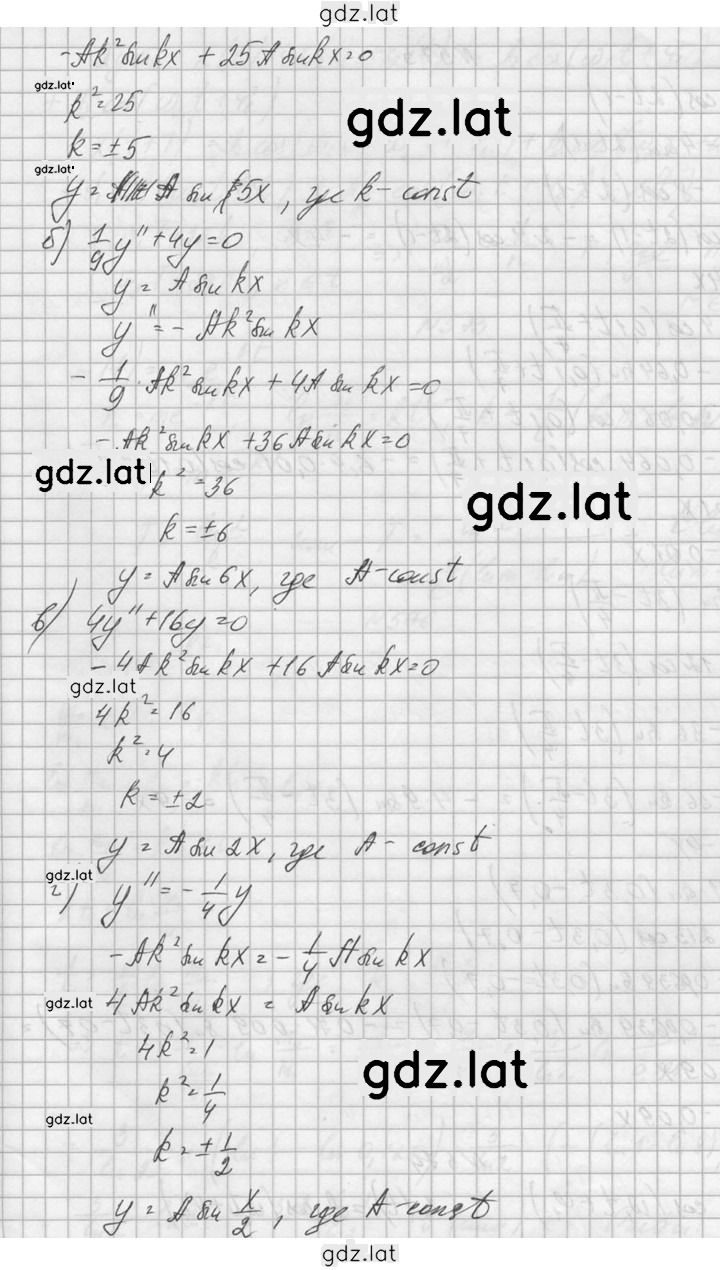 gdz.lat
-Ak² sin kx + 25A sin kx = 0
gdz.lat
k² = 25
gdz.lat
k = ±5
gdz.lat
y = A sin 5x, где k - const
б) 1/9 y'' + 4y = 0
y = A sin kx
y'' = - Ak² sin kx
- 1/9 · Ak² sin kx + 4A sin kx = 0
- Ak² sin kx + 36A sin kx = 0
gdz.lat
k² = 36
gdz.lat
k = ±6
y = A sin 6x, где A - const
в) 4y'' + 16y = 0
-4Ak² sin kx + 16A sin kx = 0
gdz.lat
4k² = 16
k² = 4
k = ±2
y = A sin 2x, где A - const
gdz.lat
г) y'' = - 1/4 y
-Ak² sin kx = - 1/4 A sin kx
gdz.lat
4Ak² sin kx = A sin kx
4k² = 1
gdz.lat
k² = 1/4
gdz.lat
k = ± 1/2
y = A sin x/2, где A - const
gdz.lat